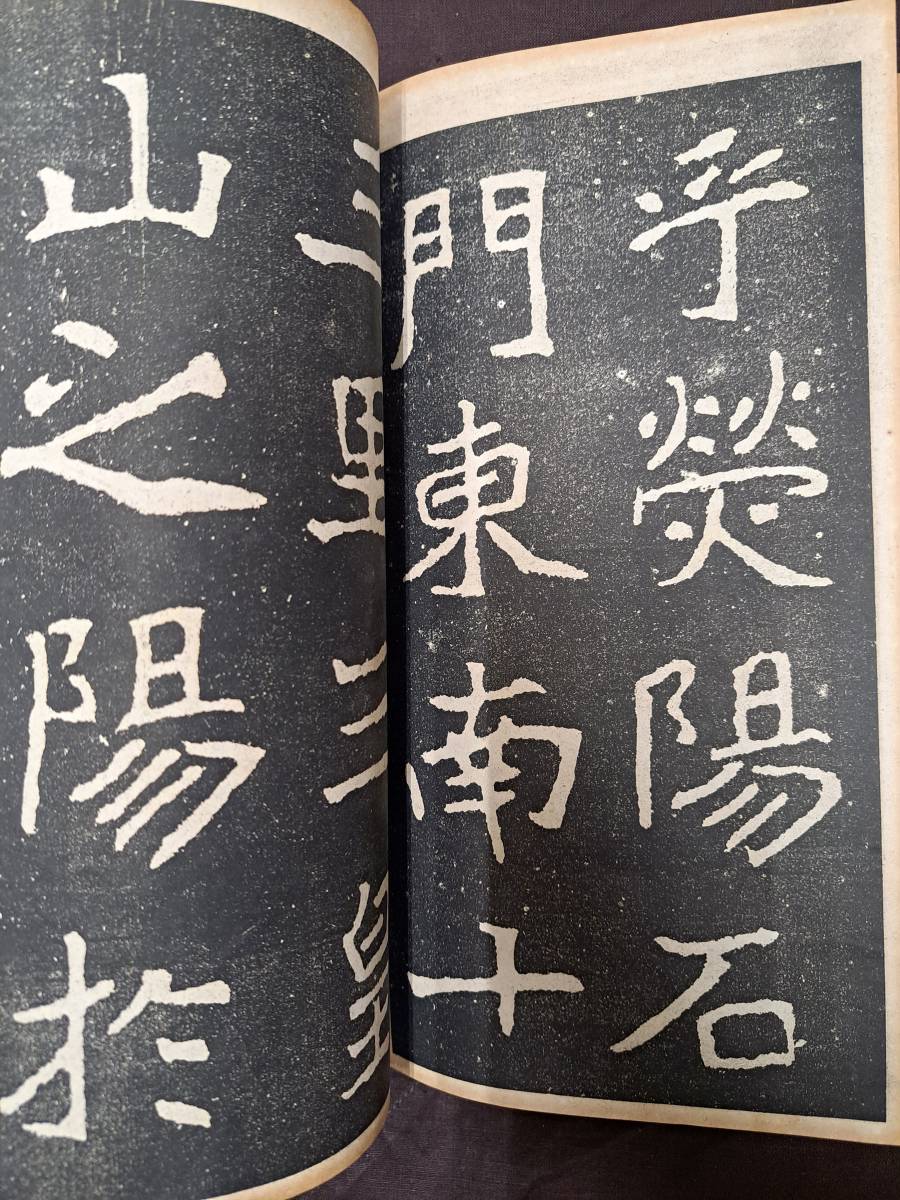 乎熒陽石
門東南十
三里三皇
山之陽於